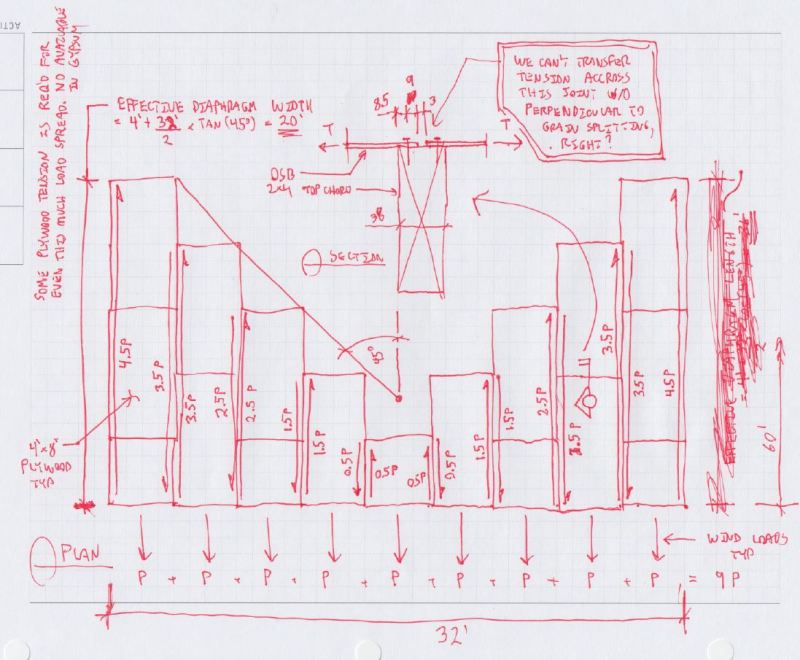 ACTI
SOME PLYWOOD TENSION IS REQ'D FOR
EVEN THIS MUCH LOAD SPREAD. NO AVAILABLE
IN GYPSUM
EFFECTIVE DIAPHRAGM WIDTH
= 4' + 32'/2 × TAN (45°) = 20'
8.5
9
3
WE CAN'T TRANSFER
TENSION ACCROSS
THIS JOINT W/O
PERPENDICULAR TO
GRAIN SPLITTING,
RIGHT?
T
T
OSB
2x4 TOP CHORD
38
SECTION
45°
4.5P
3.5P
3.5P
2.5P
2.5P
1.5P
1.5P
0.5P
0.5P
0.5P
0.5P
1.5P
1.5P
2.5P
3.5P
3.5P
3.5P
4.5P
EFFECTIVE DIAPHRAGM LENGTH
60'
4'x8'
PLYWOOD
TYP
PLAN
WIND LOADS
TYP
P + P + P + P + P + P + P + P + P = 9P
32'